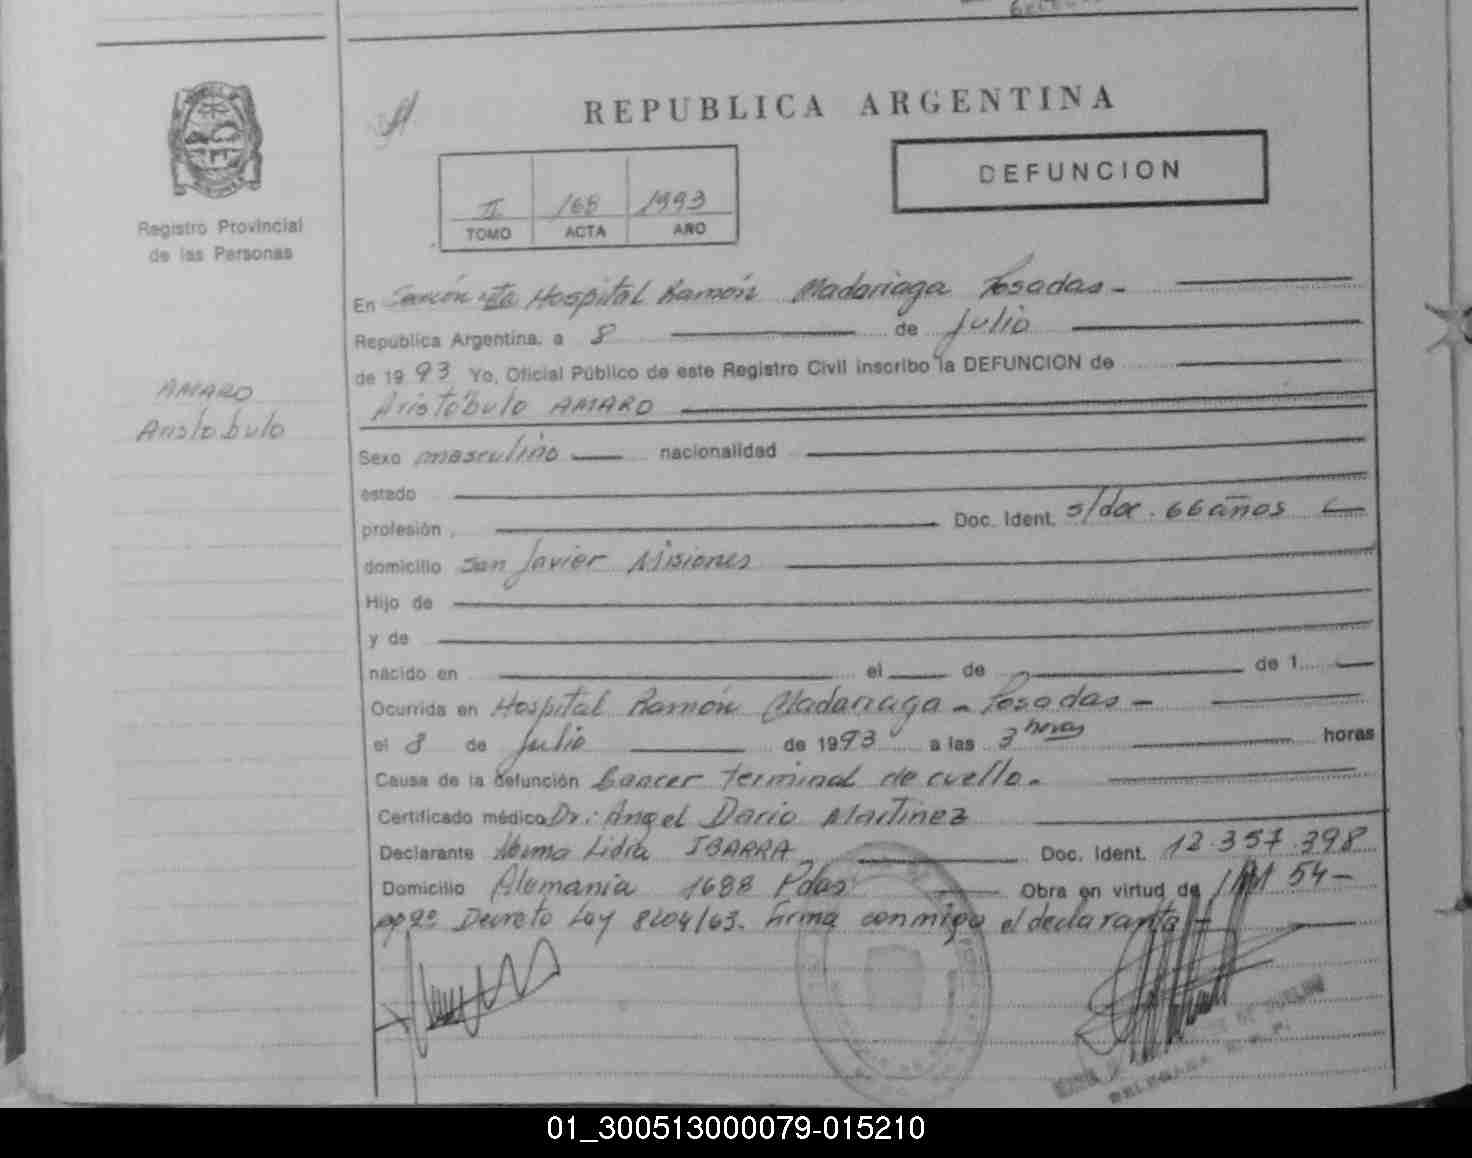 REPUBLICA ARGENTINA
DEFUNCION
II 168 1993
TOMO ACTA AÑO
Registro Provincial
de las Personas
AMARO
Aristobulo
En Hospital Ramón Madariaga Posadas -
Republica Argentina, a 8 de Julio
de 1993 Yo, Oficial Público de este Registro Civil inscribo la DEFUNCION de
Aristóbulo AMARO
Sexo masculino nacionalidad
estado
profesión Doc. Ident. s/doc. 66 años
domicilio San Javier Misiones
Hijo de
y de
nacido en el de de 1
Ocurrida en Hospital Ramón Madariaga - Posadas -
el 8 de Julio de 1993 a las 3 horas horas
Causa de la defunción Cancer terminal de cuello.
Certificado médico Dr. Angel Dario Martinez
Declarante Norma Lidia IBARRA Doc. Ident. 12.357.398
Domicilio Alemania 1688 Pdas Obra en virtud de 54-
Decreto Ley 8204/63. Firma conmigo el declarante-
01_300513000079-015210